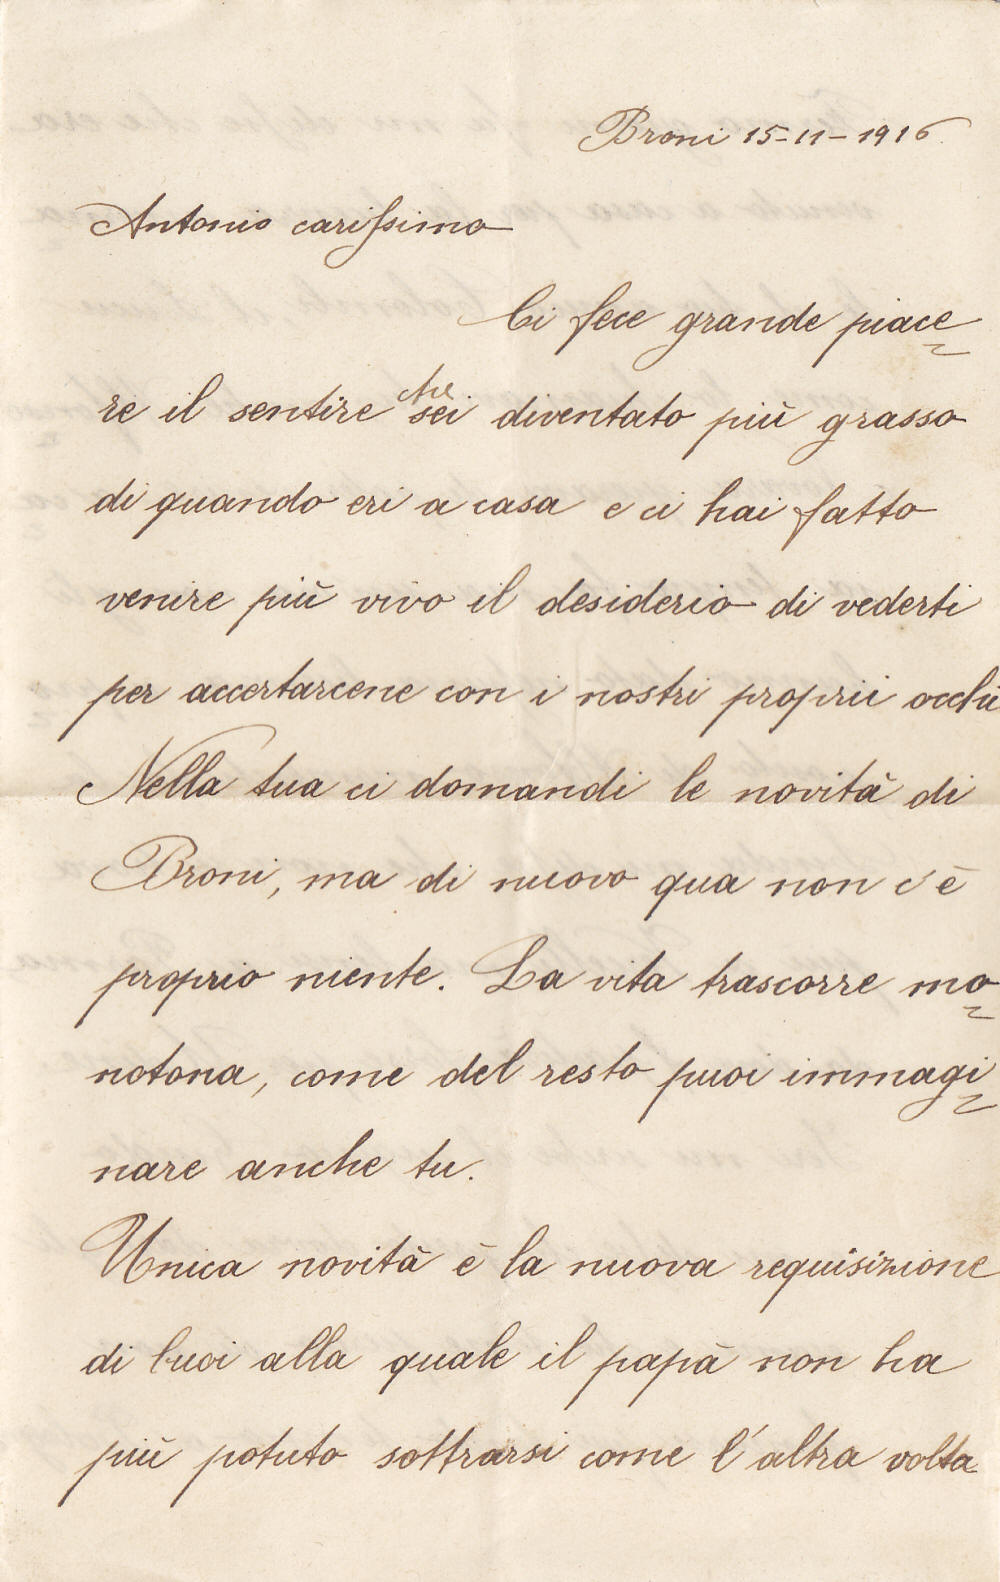 Broni 15-11-1916
Antonio carissimo
Ci fece grande piace=
re il sentire che sei diventato più grasso
di quando eri a casa e ci hai fatto
venire più vivo il desiderio di vederti
per accertarcene con i nostri proprii occhi
Nella tua ci domandi le novità di
Broni, ma di nuovo qua non c'è
proprio niente. La vita trascorre mo=
notona, come del resto puoi immagi=
nare anche tu.
Unica novità è la nuova requisizione
di buoi alla quale il papà non ha
più potuto sottrarsi come l'altra volta